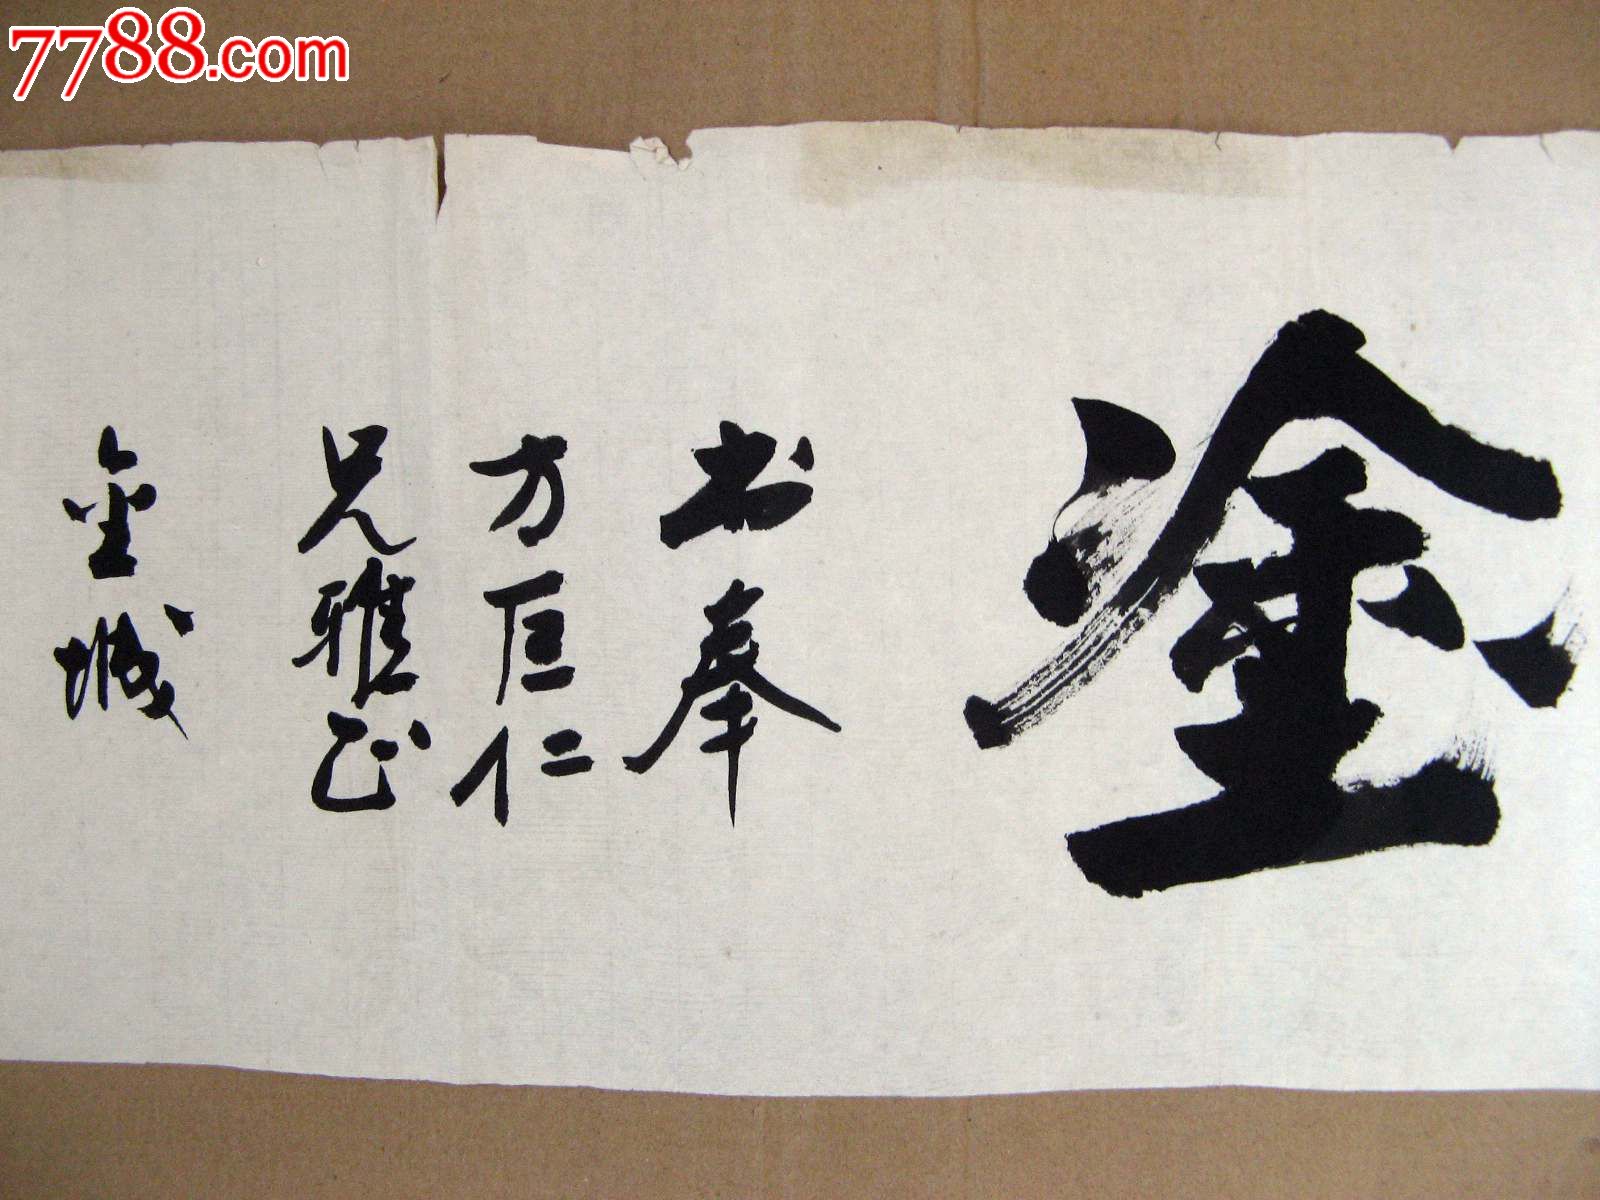 7788.com
塗
书奉
方巨仁
兄雅正
金城